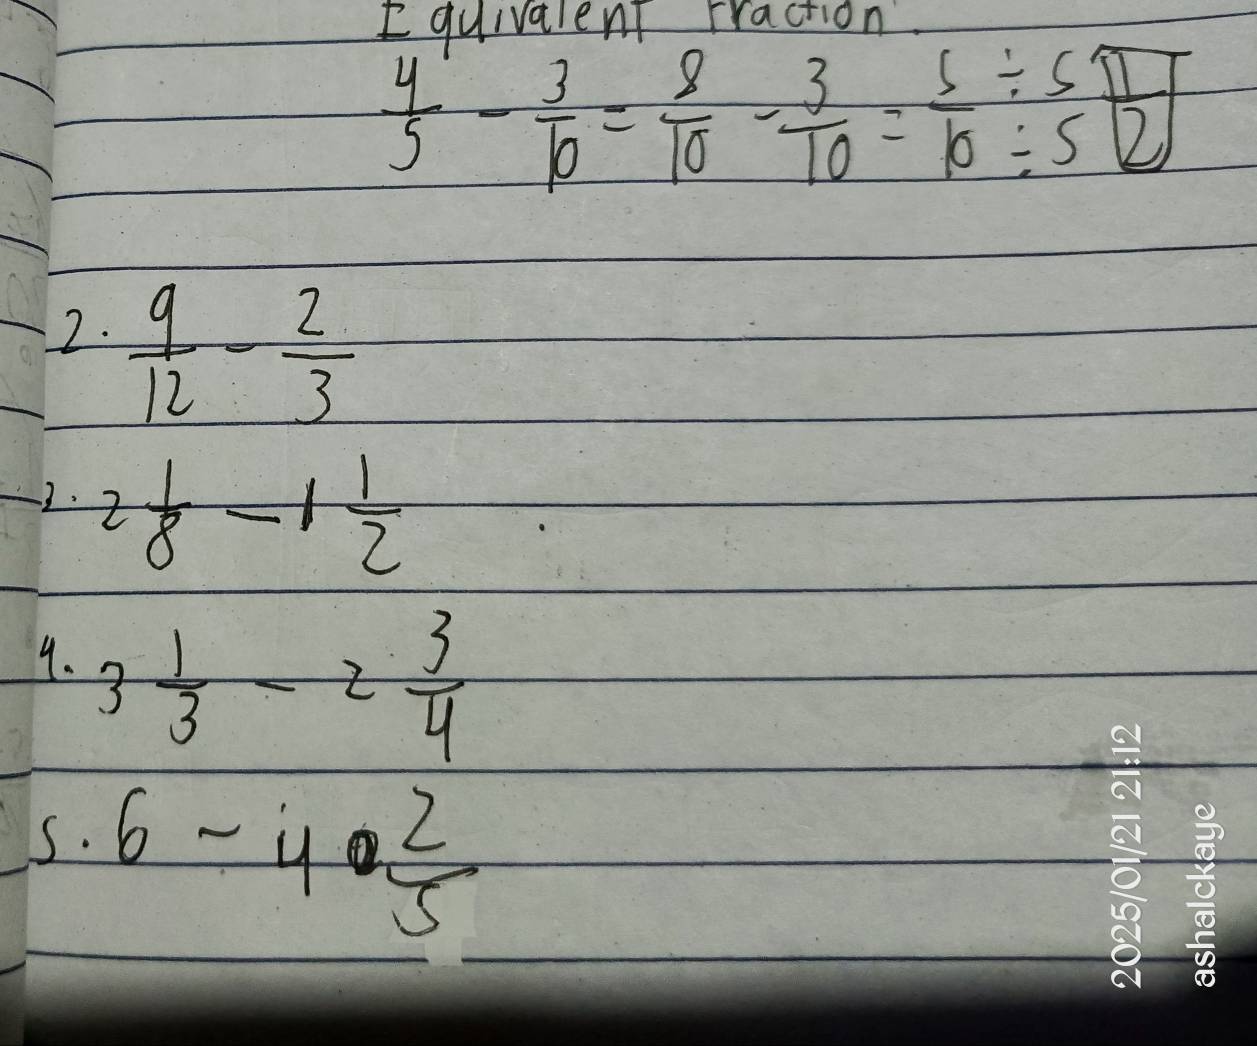 Equivalent Fraction
4/5 - 3/10 = 8/10 - 3/10 = 5/10 ÷ 5/÷ 5 1/2
2. 9/12 - 2/3
3. 2 1/8 - 1 1/2
4. 3 1/3 - 2 3/4
5. 6 - 4 2/5
2025/01/21 21:12
ashalckaye